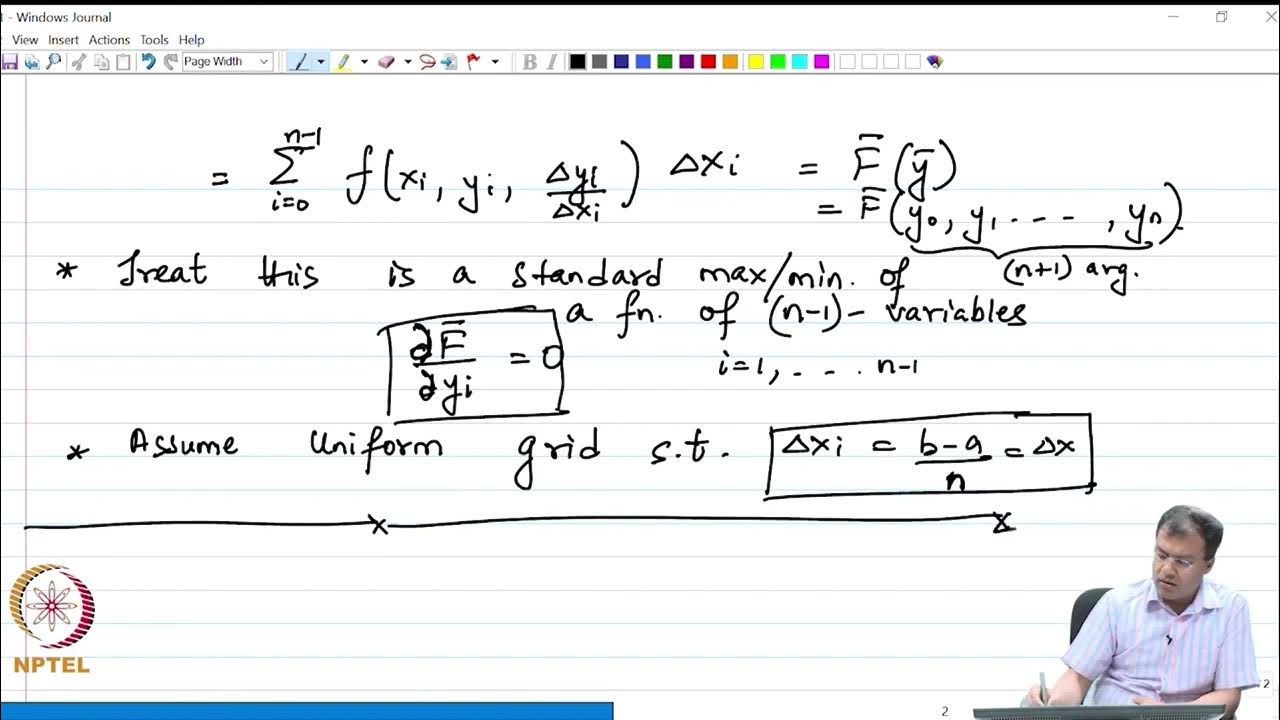 - Windows Journal
View Insert Actions Tools Help
Page Width
= \sum_{i=0}^{n-1} f(x_i, y_i, \frac{Δy_i}{Δx_i}) Δx_i = \bar{F}(\bar{y})
= \bar{F}(y_0, y_1 . - - - , y_n).
(n+1) arg.
* Treat this is a standard max/min. of
a fn. of (n-1)- variables
\frac{∂\bar{F}}{∂y_i} = 0 i=1, - - . n-1
* Assume Uniform grid s.t. Δx_i = \frac{b-a}{n} = Δx
NPTEL
2
2